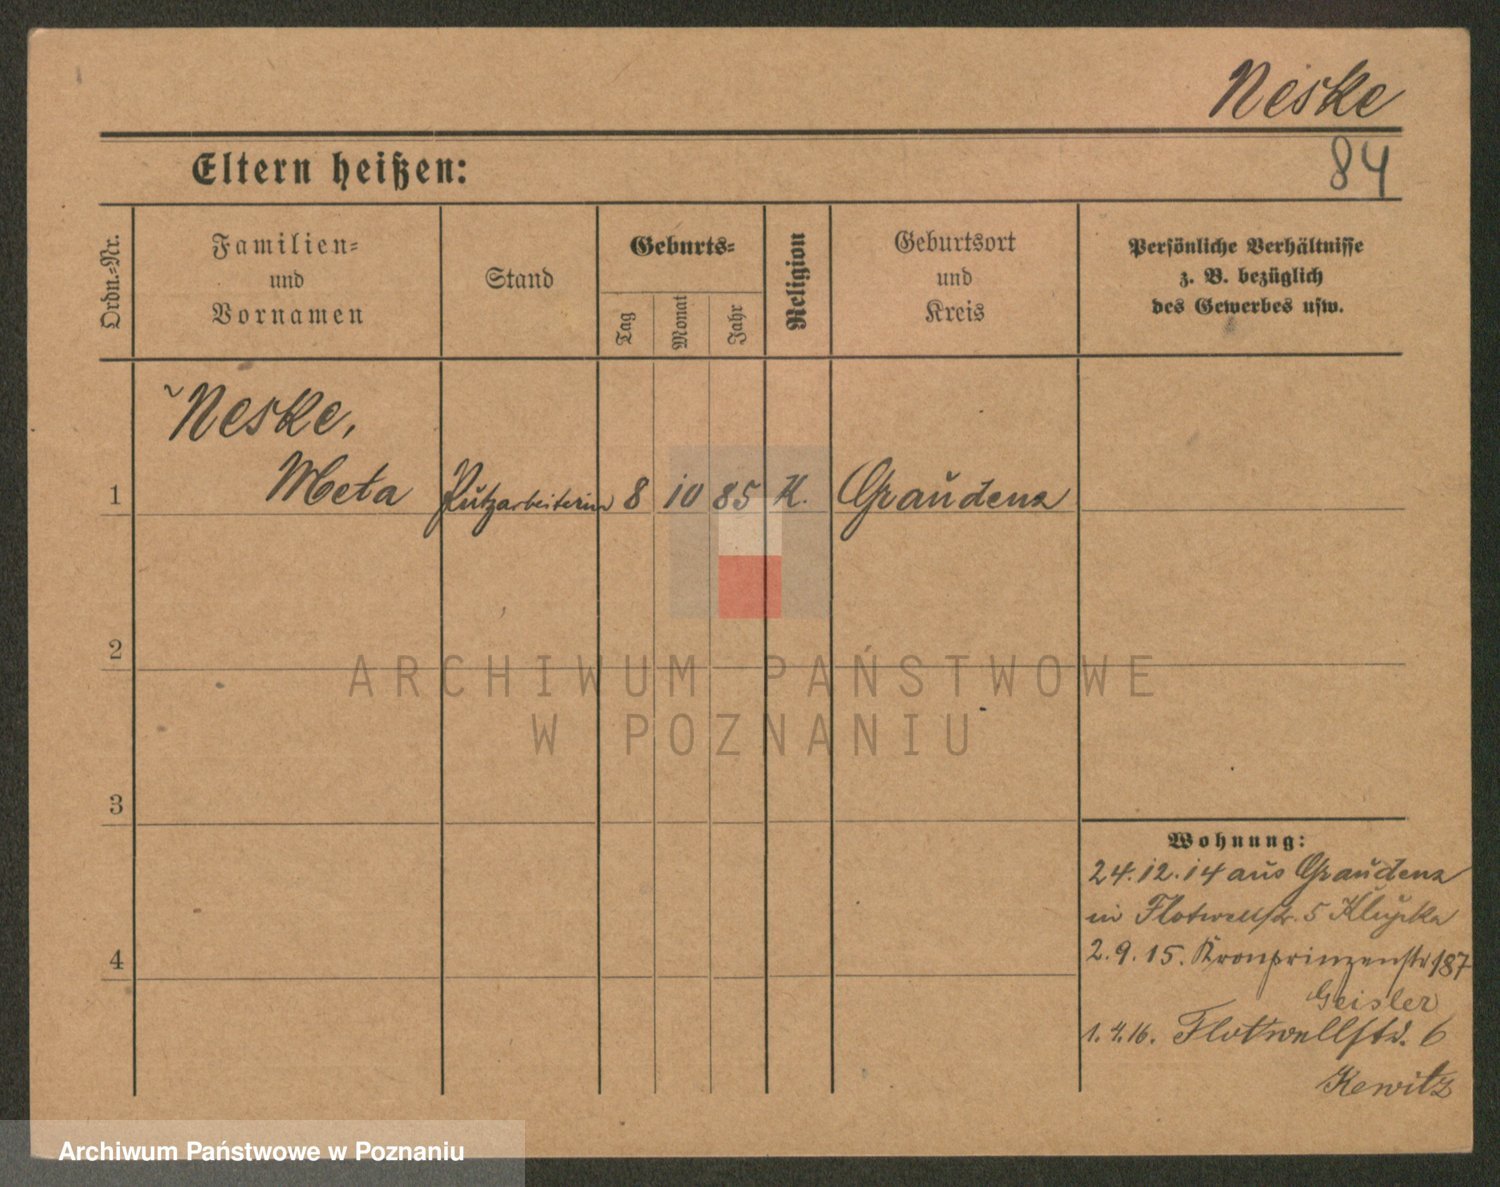 Neske
84
Eltern heißen:
Ordn.=Nr.
Familien=
und
Vornamen
Stand
Geburts=
Tag
Monat
Jahr
Religion
Geburtsort
und
Kreis
Persönliche Verhältnisse
z. B. bezüglich
des Gewerbes usw.
Neske,
1 Meta Putzarbeiterin 8 10 85 K. Graudenz
2
3
4
Wohnung:
24.12.14 aus Graudenz
in Flotwellstr. 5
2.9.15. Kronprinzenstr 187
Geisler
1.4.16. Flotwellstr. 6
Kewitz
ARCHIWUM PAŃSTWOWE
W POZNANIU
Archiwum Państwowe w Poznaniu